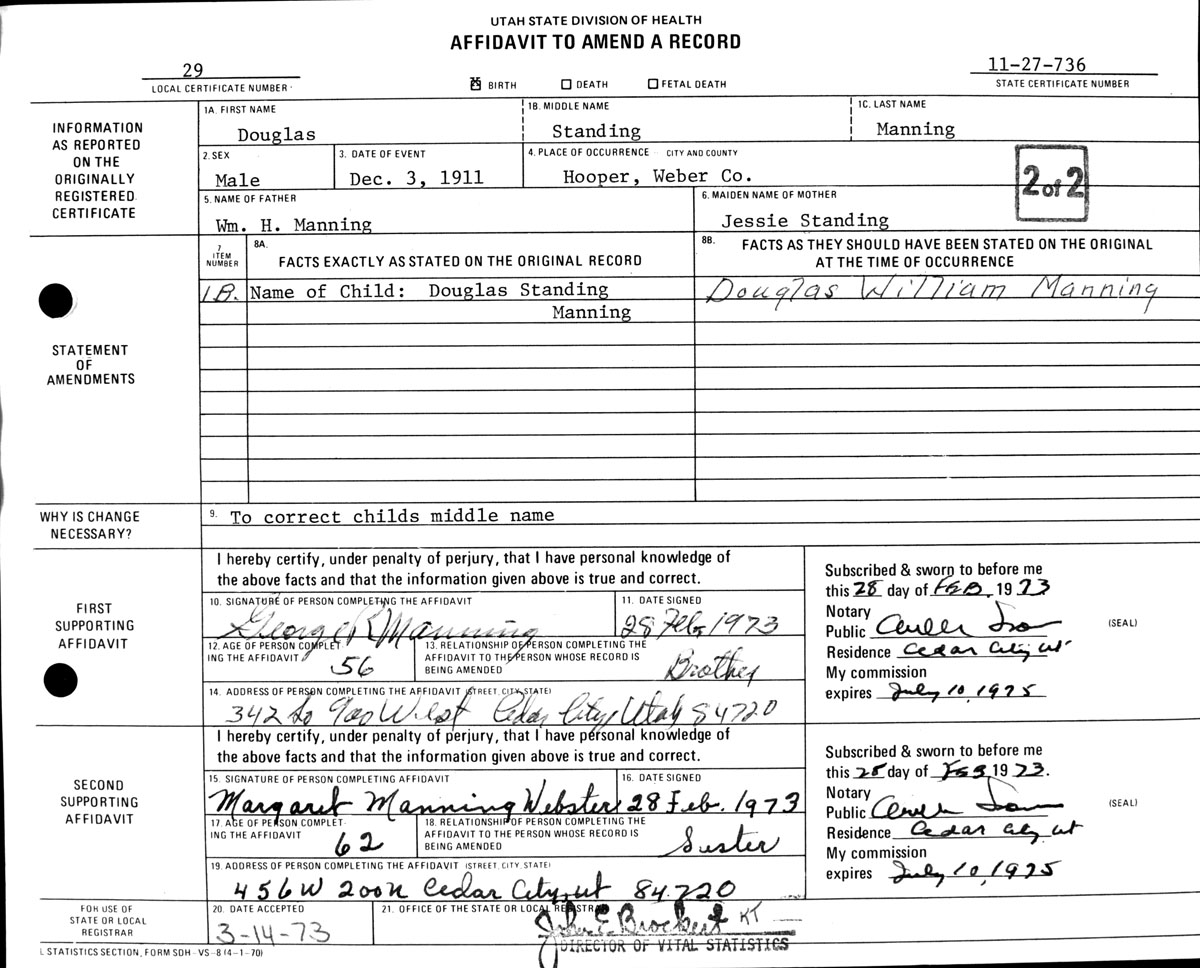 UTAH STATE DIVISION OF HEALTH
AFFIDAVIT TO AMEND A RECORD
29
LOCAL CERTIFICATE NUMBER
BIRTH
DEATH
FETAL DEATH
11-27-736
STATE CERTIFICATE NUMBER
INFORMATION
AS REPORTED
ON THE
ORIGINALLY
REGISTERED
CERTIFICATE
1A. FIRST NAME
Douglas
1B. MIDDLE NAME
Standing
1C. LAST NAME
Manning
2. SEX
Male
3. DATE OF EVENT
Dec. 3, 1911
4. PLACE OF OCCURRENCE - CITY AND COUNTY
Hooper, Weber Co.
2 of 2
5. NAME OF FATHER
Wm. H. Manning
6. MAIDEN NAME OF MOTHER
Jessie Standing
STATEMENT
OF
AMENDMENTS
7
ITEM
NUMBER
8A.
FACTS EXACTLY AS STATED ON THE ORIGINAL RECORD
8B. FACTS AS THEY SHOULD HAVE BEEN STATED ON THE ORIGINAL
AT THE TIME OF OCCURRENCE
1B. Name of Child: Douglas Standing
Manning
Douglas William Manning
WHY IS CHANGE
NECESSARY?
9. To correct childs middle name
FIRST
SUPPORTING
AFFIDAVIT
I hereby certify, under penalty of perjury, that I have personal knowledge of
the above facts and that the information given above is true and correct.
10. SIGNATURE OF PERSON COMPLETING THE AFFIDAVIT
George R Manning
11. DATE SIGNED
28 Feb, 1973
12. AGE OF PERSON COMPLET-
ING THE AFFIDAVIT
56
13. RELATIONSHIP OF PERSON COMPLETING THE
AFFIDAVIT TO THE PERSON WHOSE RECORD IS
BEING AMENDED
Brother
14. ADDRESS OF PERSON COMPLETING THE AFFIDAVIT (STREET, CITY, STATE)
342 So 900 West Cedar City, Utah 84720
Subscribed & sworn to before me
this 28 day of FEB, 1973
Notary
Public
(SEAL)
Residence Cedar City, Ut
My commission
expires July 10, 1975
SECOND
SUPPORTING
AFFIDAVIT
I hereby certify, under penalty of perjury, that I have personal knowledge of
the above facts and that the information given above is true and correct.
15. SIGNATURE OF PERSON COMPLETING AFFIDAVIT
Margaret Manning Webster
16. DATE SIGNED
28 Feb. 1973
17. AGE OF PERSON COMPLET-
ING THE AFFIDAVIT
62
18. RELATIONSHIP OF PERSON COMPLETING THE
AFFIDAVIT TO THE PERSON WHOSE RECORD IS
BEING AMENDED
Sister
19. ADDRESS OF PERSON COMPLETING THE AFFIDAVIT (STREET, CITY, STATE)
456 W 200 N Cedar City, Ut 84720
Subscribed & sworn to before me
this 28 day of FEB 1973.
Notary
Public
(SEAL)
Residence Cedar City Ut
My commission
expires July 10, 1975
FOR USE OF
STATE OR LOCAL
REGISTRAR
20. DATE ACCEPTED
3-14-73
21. OFFICE OF THE STATE OR LOCAL REGISTRAR
John E Brockert KT
DIRECTOR OF VITAL STATISTICS
L STATISTICS SECTION, FORM SDH-VS-8 (4-1-70)